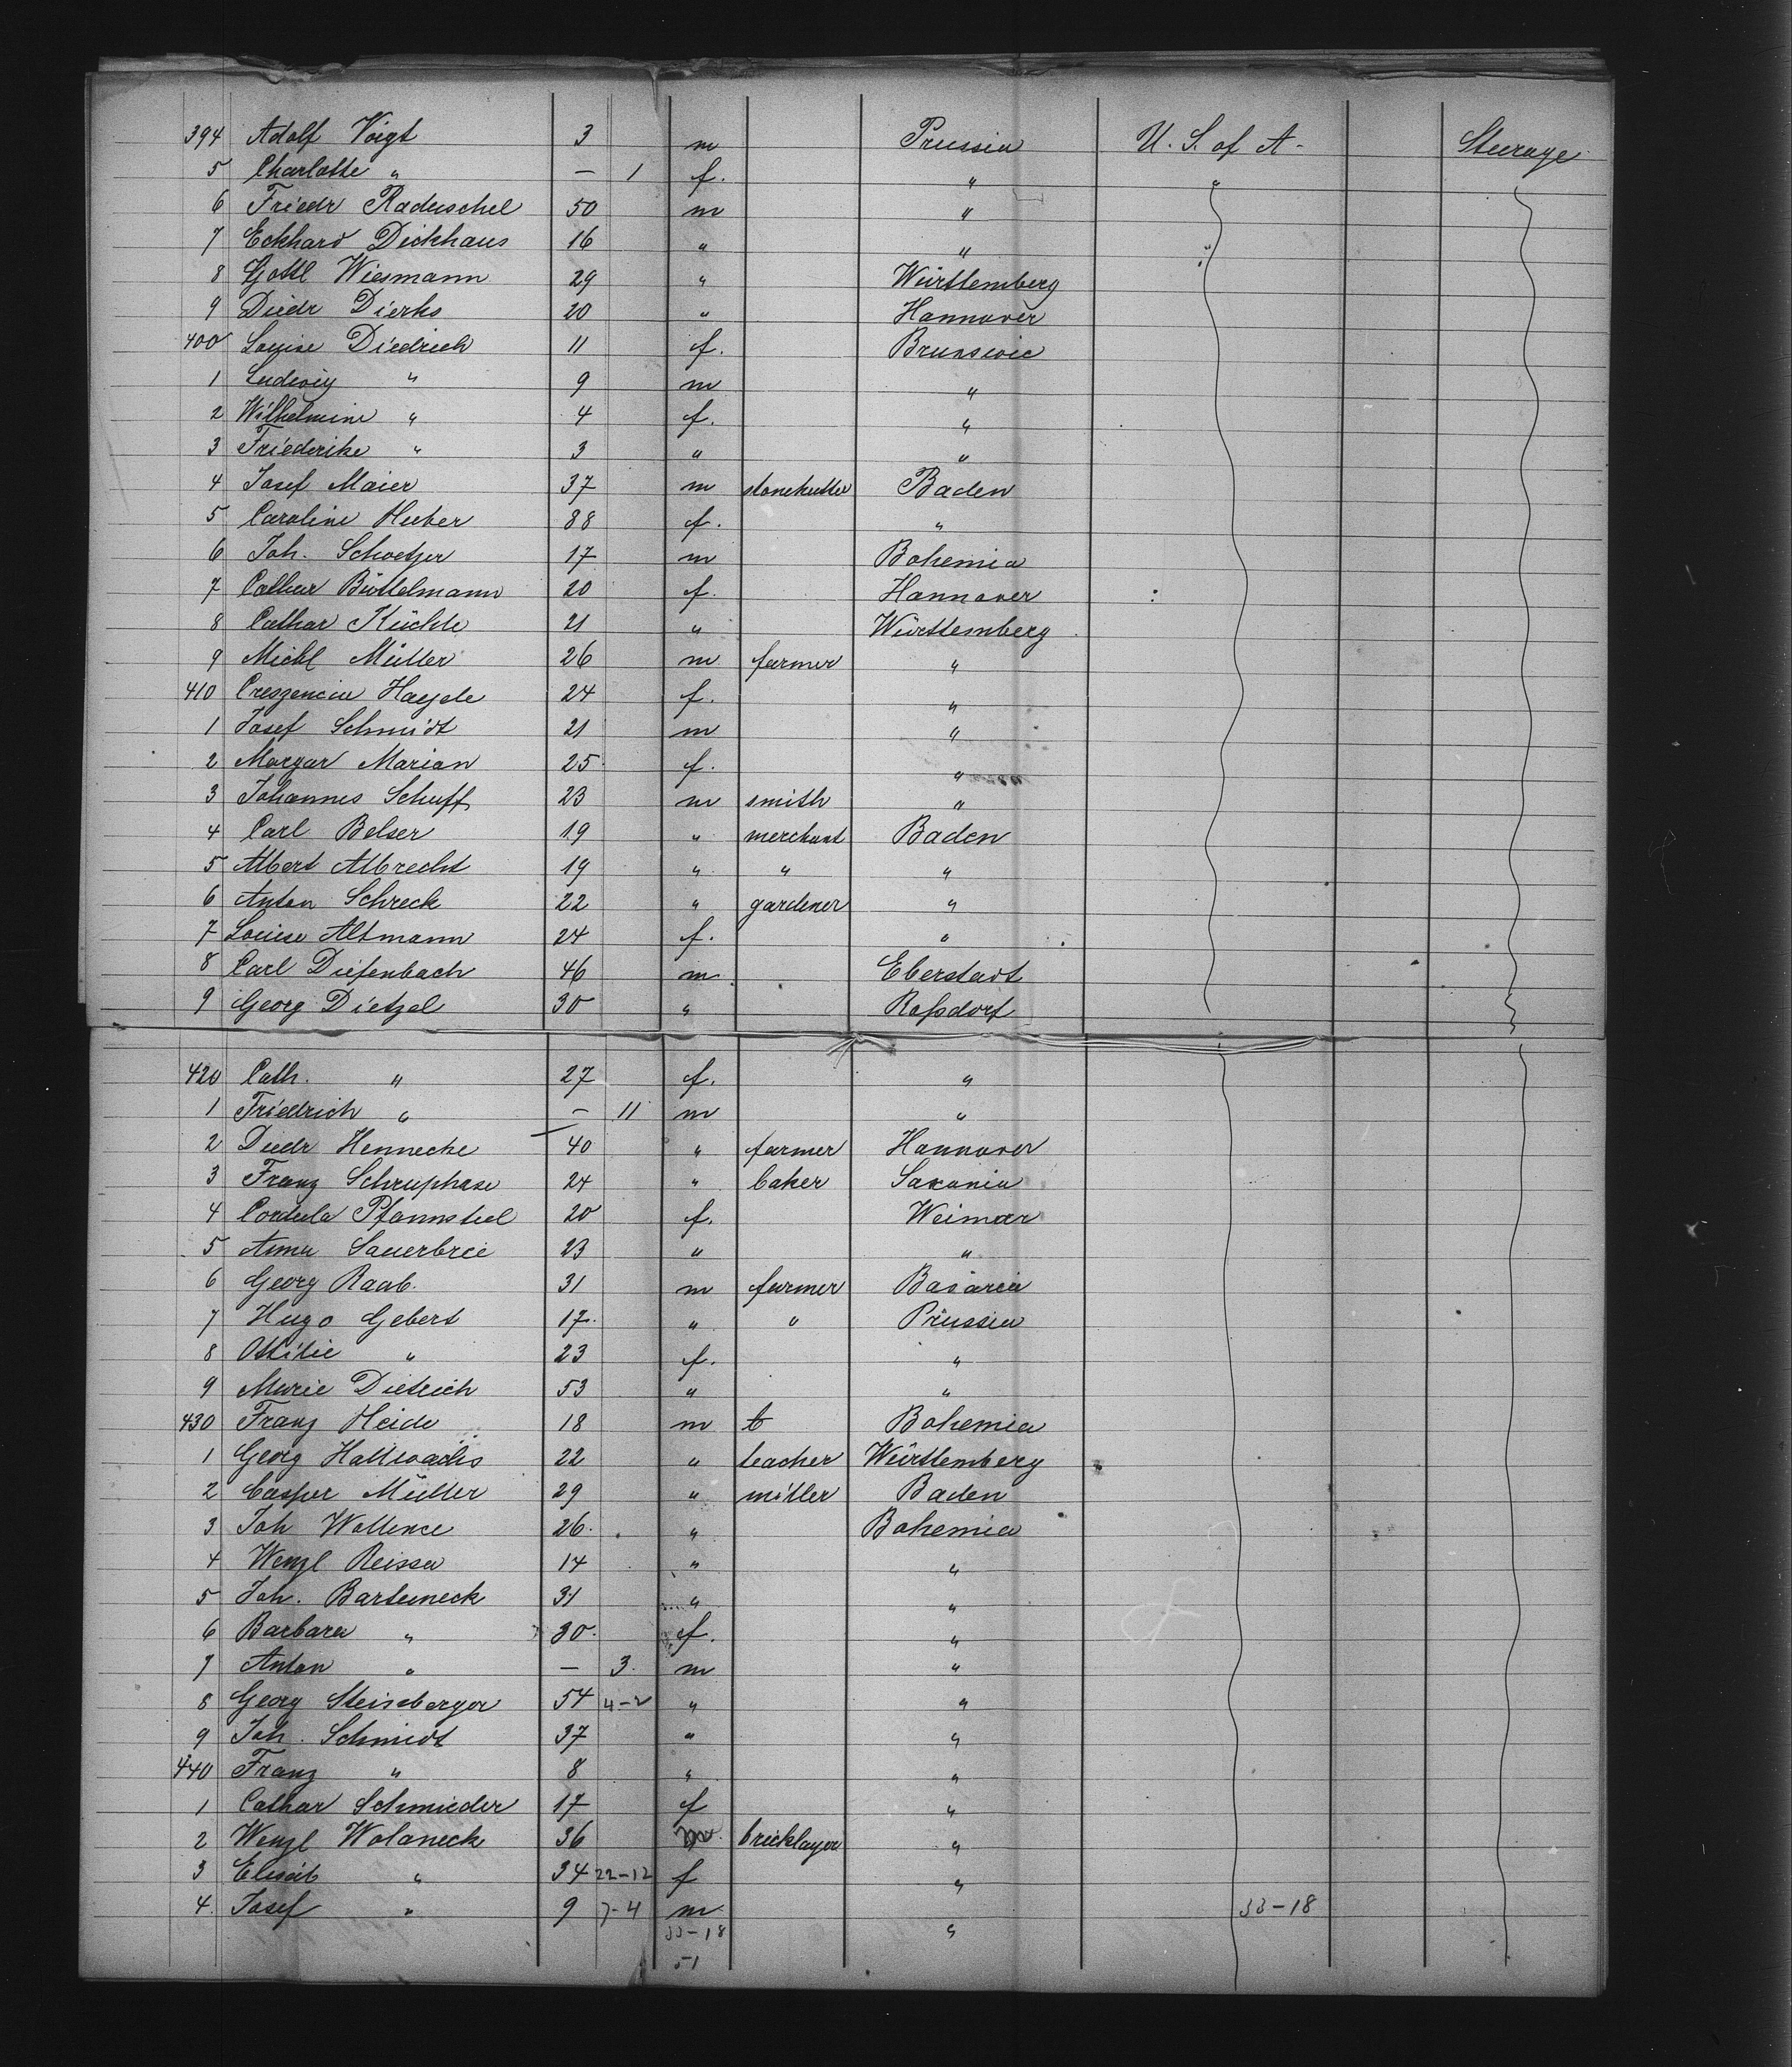 394 Adolf Voigt 3 m Prussia U. S. of A. Steerage
5 Charlotte " — 1 f. " "
6 Friedr Raduschel 50 m "
7 Eckhard Dickhaus 16 " " "
8 Gottl Wiesmann 29 " Württemberg
9 Diedr Dierks 20 " Hannover
400 Louise Diedrich 11 f. Brunswic
1 Ludwig " 9 m "
2 Wilhelmine " 4 f. "
3 Friederike " 3 " "
4 Josef Maier 37 m stonekutter Baden
5 Caroline Huber 88 f. "
6 Joh. Schwetzer 17 m Bohemia
7 Cathar Büttelmann 20 f. Hannover
8 Cathar Küchle 21 " Württemberg
9 Michl Müller 26 m farmer "
410 Creszencia Hagele 24 f. "
1 Josef Schmidt 21 m "
2 Margar Marian 25 f. "
3 Johannes Schuff 23 m smith "
4 Carl Belser 19 " merchant Baden
5 Albert Albrecht 19 " " "
6 Anton Schreck 22 " gardener "
7 Louise Altmann 24 f. "
8 Carl Diefenbach 46 m Eberstadt
9 Georg Dietzel 30 " Roßdorf
420 Cath. " 27 f. "
1 Friedrich " — 11 m "
2 Diedr Hennecke 40 " farmer Hannover
3 Franz Schruphase 24 " baker Saxonia
4 Cordula Pfannstiel 20 f. Weimar
5 Anna Sauerbrei 23 " "
6 Georg Raab. 31 m farmer Bavaria
7 Hugo Gebert 17 " " Prussia
8 Ottilie " 23 f. "
9 Marie Dietrich 53 " "
430 Franz Heide 18 m t Bohemia
1 Georg Hallwachs 22 " teacher Württemberg
2 Casper Müller 29 " miller Baden
3 Joh Wollence 26 " Bohemia
4 Wenzl Reissa 14 " "
5 Joh. Bartuneck 31 " "
6 Barbara " 30 f. "
7 Anton " — 3 m "
8 Georg Steineberger 54 4-2 " "
9 Joh. Schmidt 37 " "
440 Franz " 8 " "
1 Cathar Schmieder 17 f "
2 Wenzl Wolaneck 36 m bricklayer "
3 Elisab " 34 22-12 f "
4. Josef " 9 7-4 m " 33-18
33-18
51